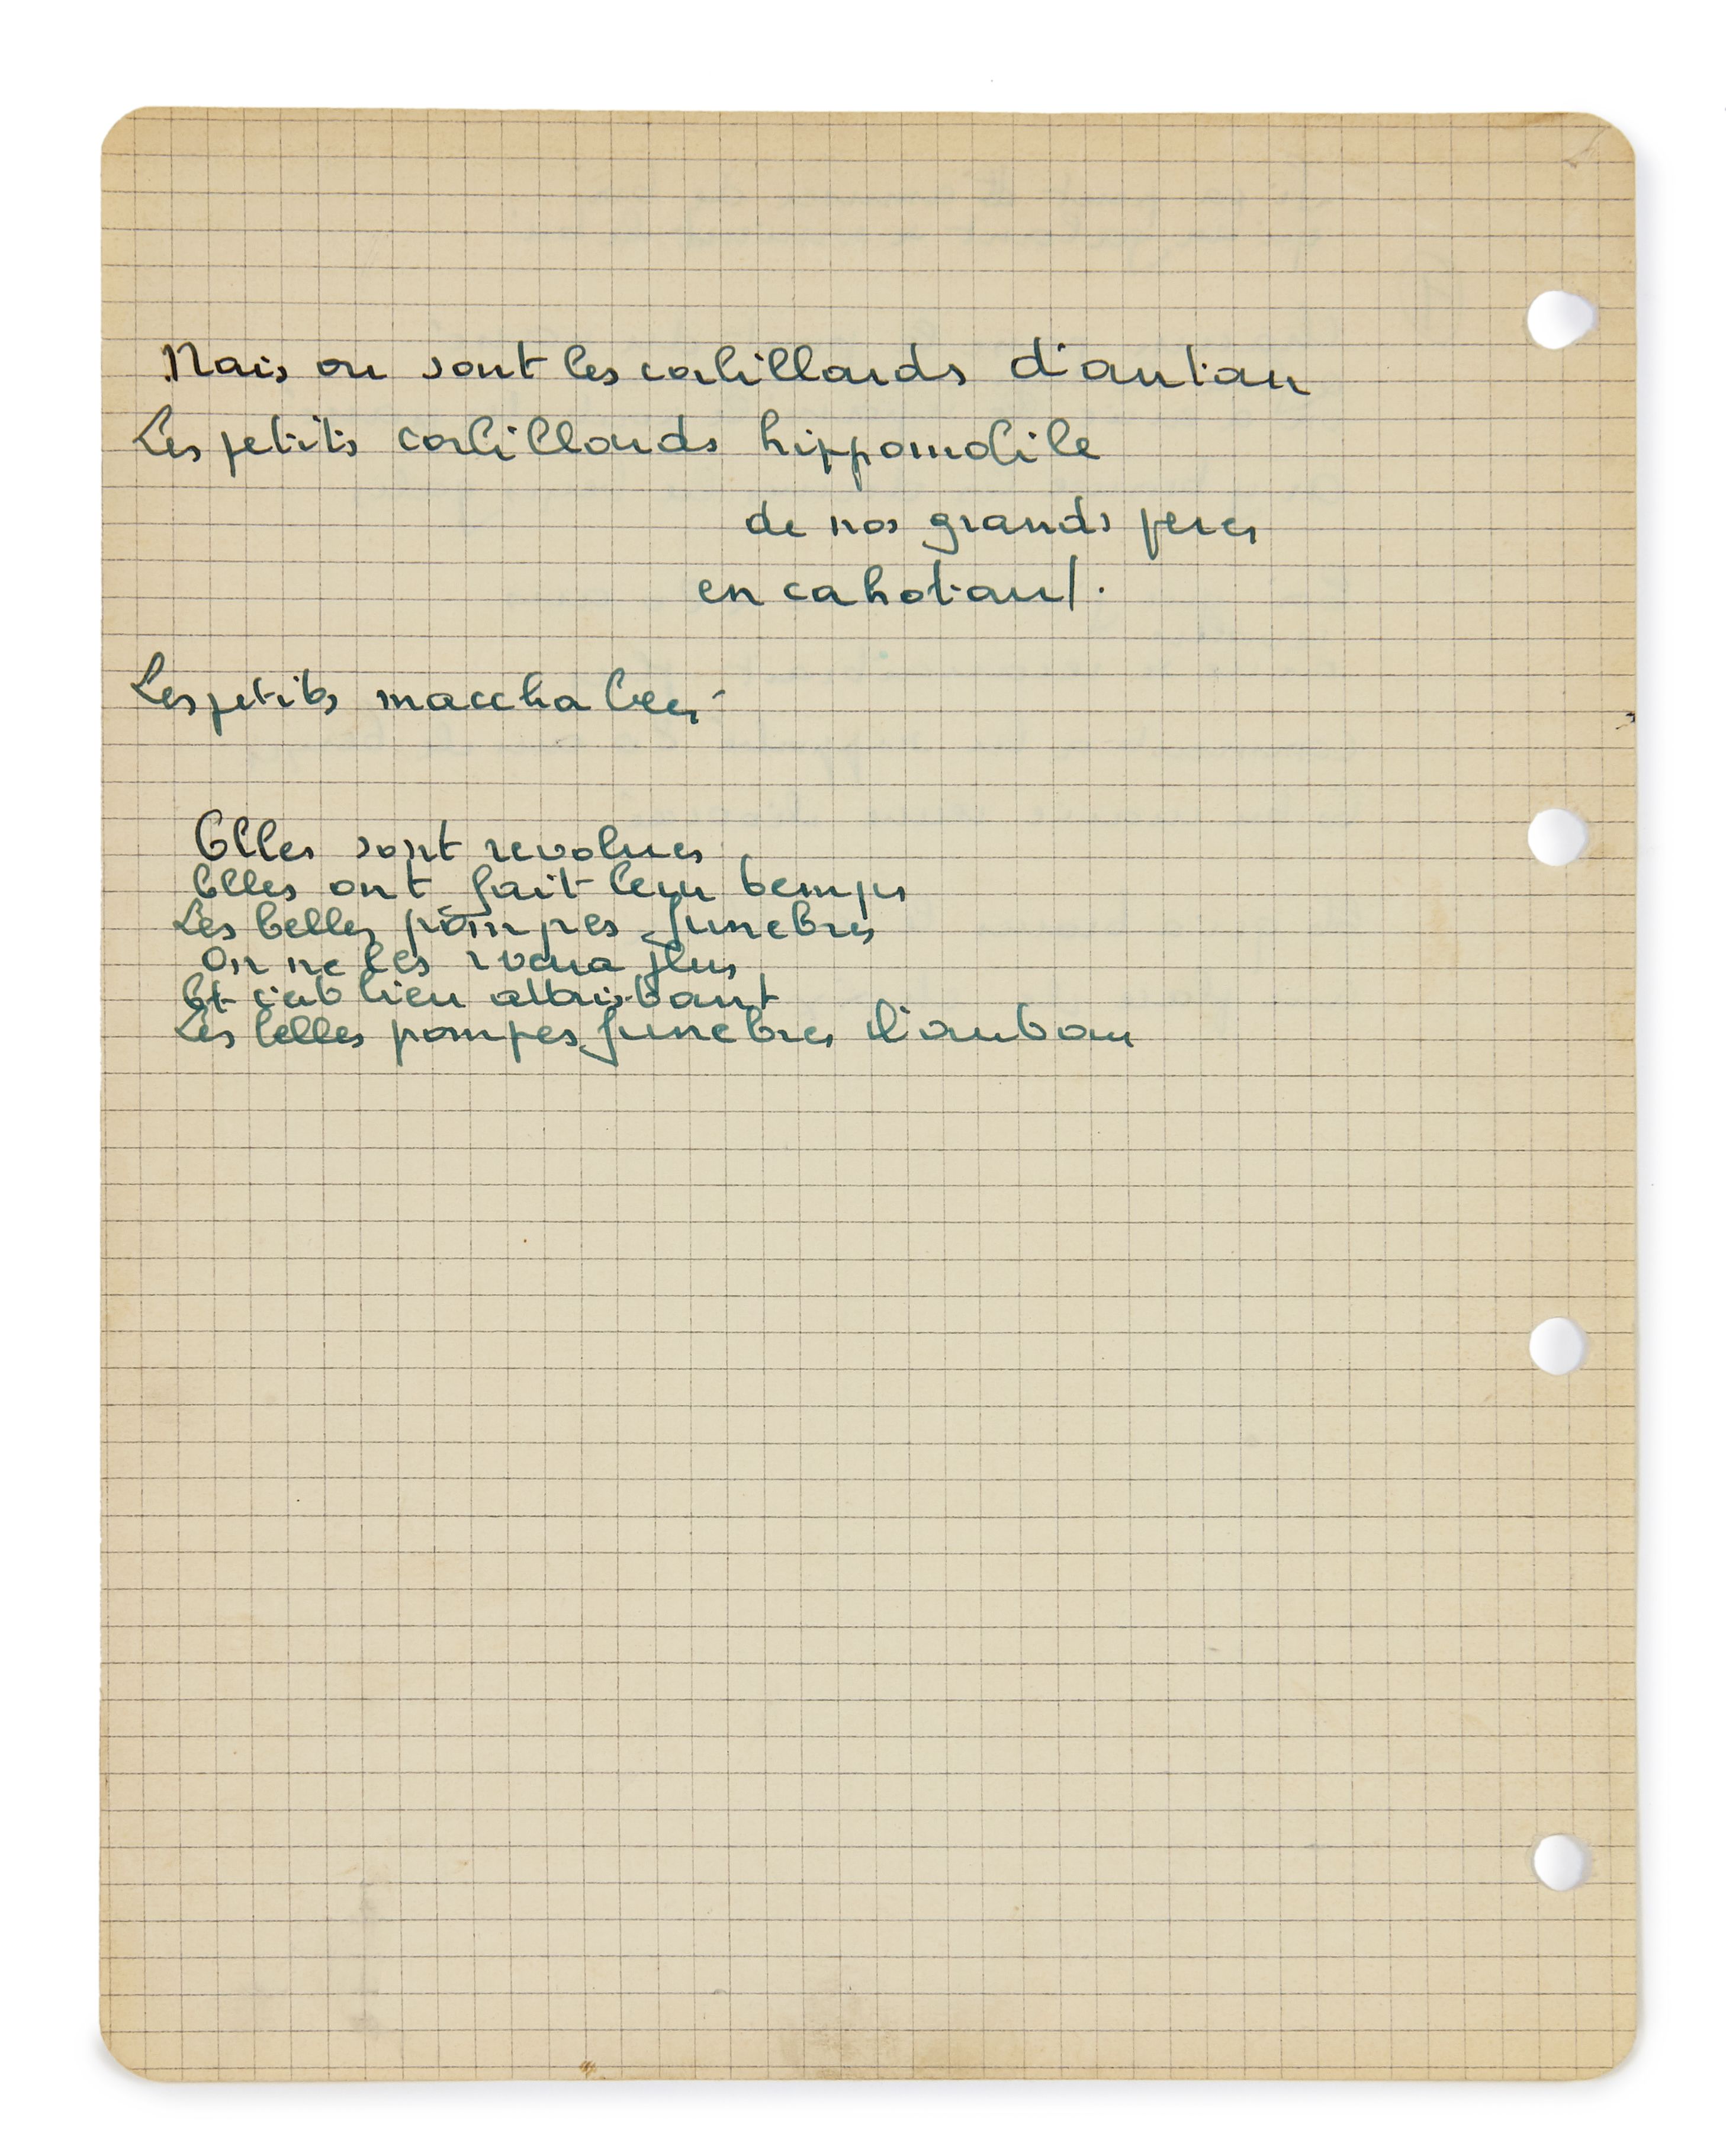 Mais ou sont les corbillards d'antan
Les petits corbillards hippomobile
de nos grands peres
en cahotant.
Les petits macchabees
Elles sont revolues
Elles ont fait leur temps
Les belles pompes funebres
On ne les rverra plus
Et c'est bien attristant
Les belles pompes funebres d'antan